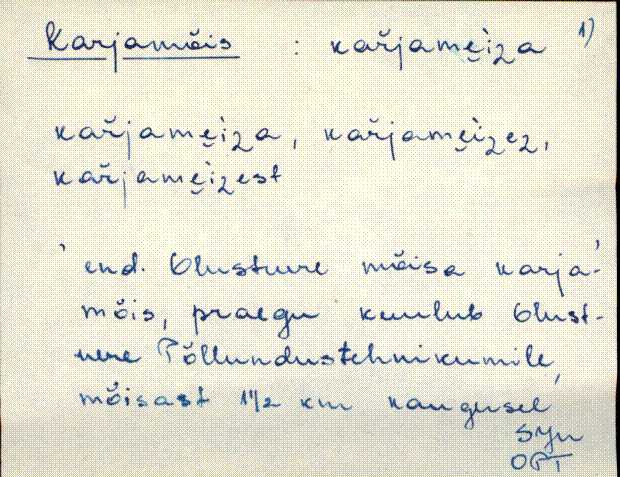 Karjamõis : kařjamẹ̀iʒa 1)
kařjamẹiʒa, kařjamẹ̀iʒeʒ,
kařjamẹ̀iʒest
' end. Olustvere mõisa karja-'
mõis, praegu kuulub Olust-
vere Põllundustehnikumile,
mõisast 1 1/2 km kaugusel
SJn
OPT